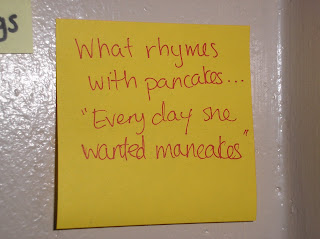 gs
What rhymes
with pancakes...
"Every day she
wanted maneakes"